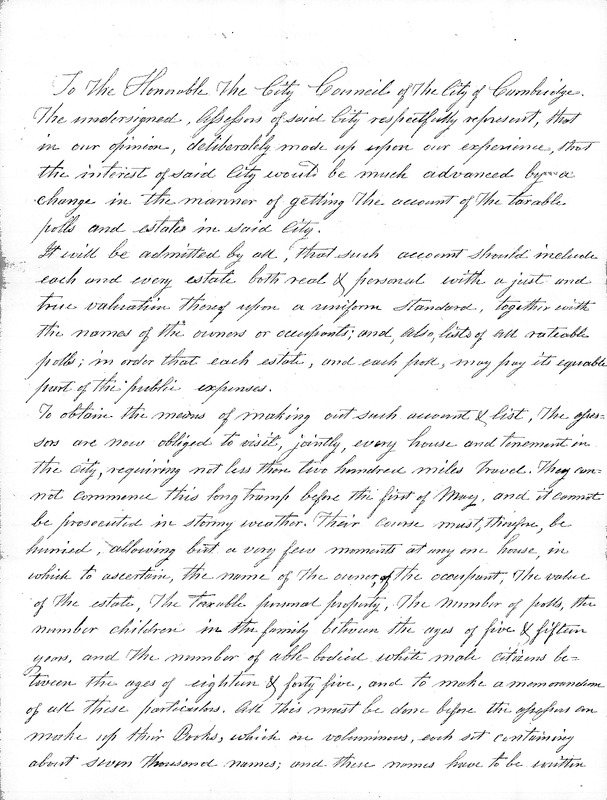 To the Honorable the City Council of the City of Cambridge.
The undersigned, Assessors of said City respectfully represent, that
in our opinion, deliberately made up upon our experience, that
the interest of said City would be much advanced by a
change in the manner of getting the account of the taxable
polls and estates in said City.
It will be admitted by all, that such account should include
each and every estate both real & personal with a just and
true valuation thereof upon a uniform standard, together with
the names of the owners or occupants; and, also, lists of all rateable
polls; in order that each estate, and each poll, may pay its equable
part of the public expenses.
To obtain the means of making out such account & list, the asses-
sors are now obliged to visit, jointly, every house and tenement in
the city, requiring not less than two hundred miles travel. They can-
not commence this long tramp before the first of May, and it cannot
be prosecuted in stormy weather. Their course must, therefore, be
hurried, allowing but a very few moments at any one house, in
which to ascertain, the name of the owner, of the occupant, the value
of the estate, the taxable personal property, the number of polls, the
number children in the family between the ages of five & fifteen
years, and the number of able-bodied white male citizens be-
tween the ages of eighteen & forty five, and to make a memorandum
of all these particulars. All this must be done before the assessors can
make up their Books, which are voluminous, each set containing
about seven thousand names; and these names have to be written